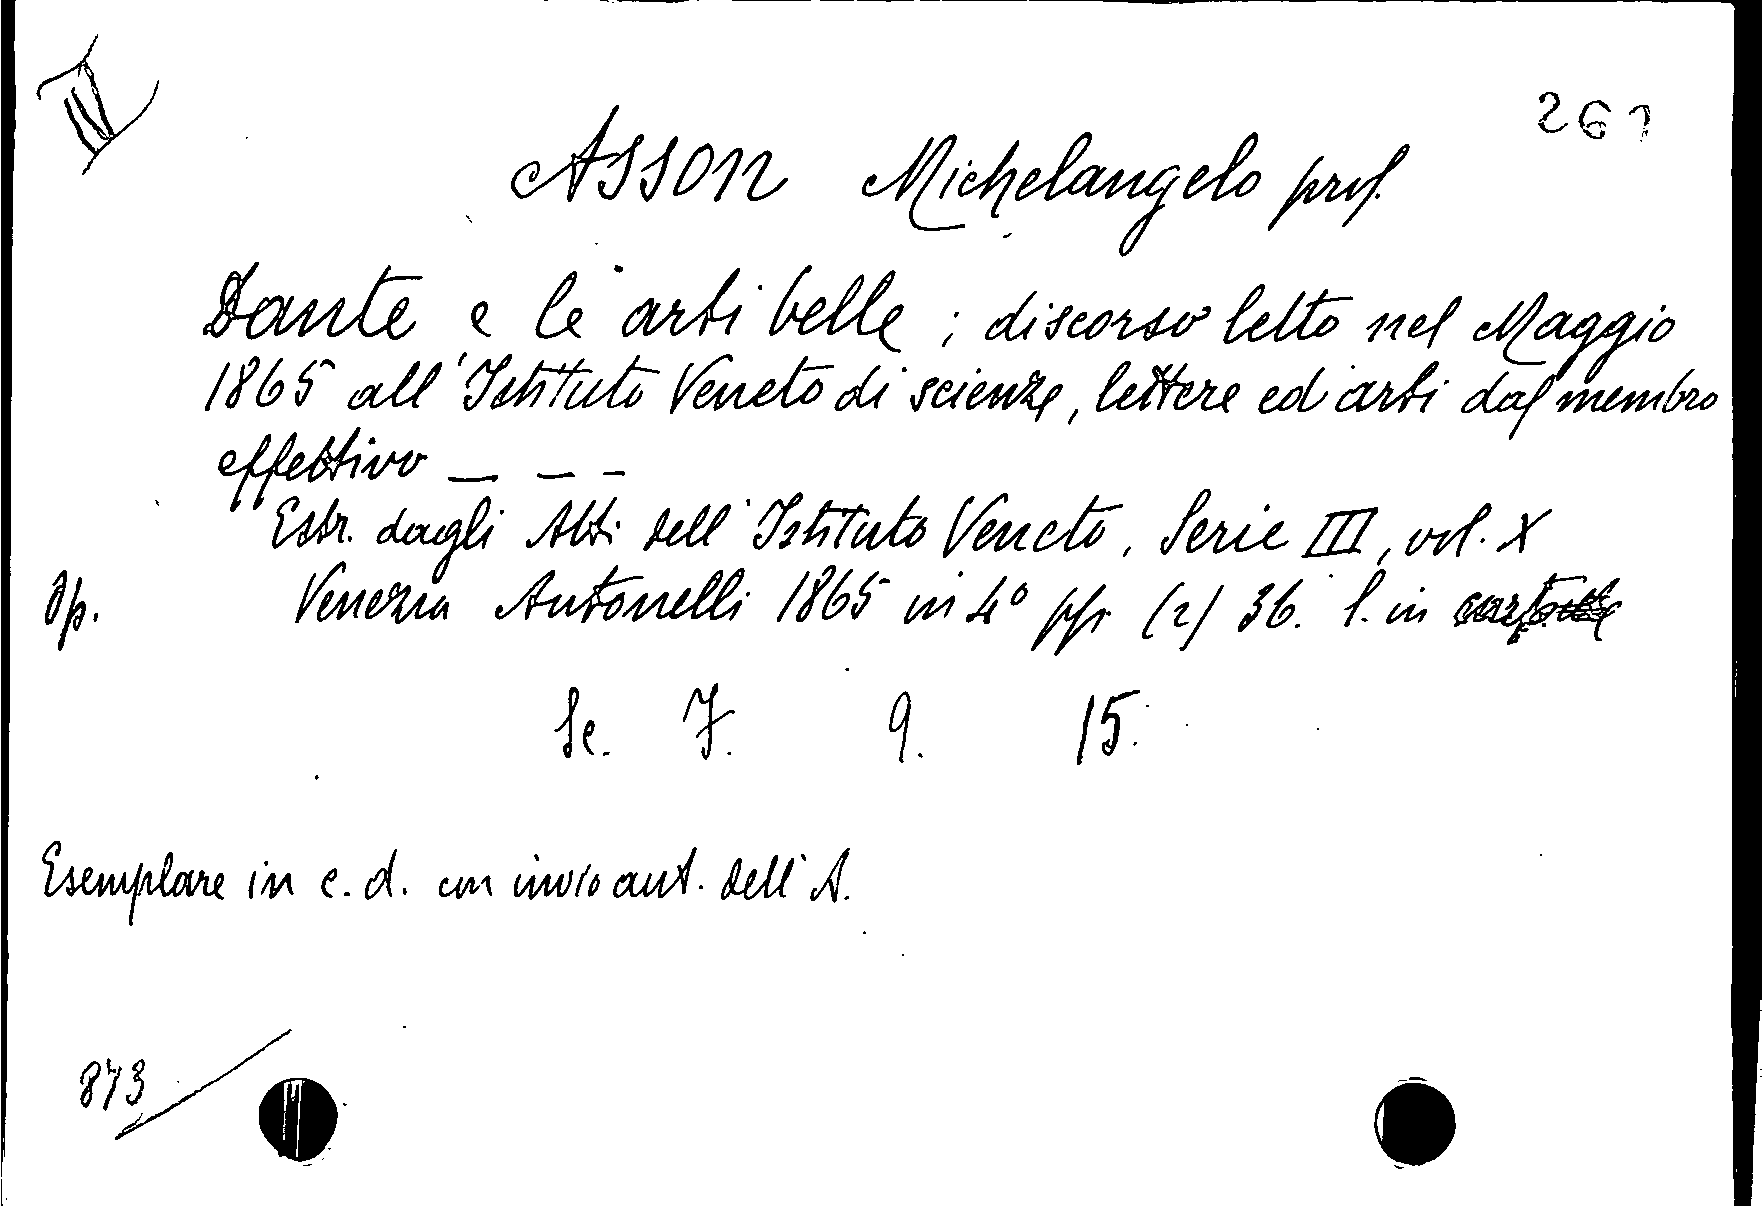 III
261
ASSON Michelangelo prof.
Dante e le arti belle ; discorso letto nel Maggio
1865 all'Istituto Veneto di scienze, lettere ed arti dal membro
effettivo _ _ _
Estr. dagli Atti dell'Istituto Veneto, Serie III, vol. X
Op. Venezia Antonelli 1865 in 4° pp. (2) 36. l. in
Se. 7. 9. 15.
Esemplare in c. d. con invio aut. dell'A.
873